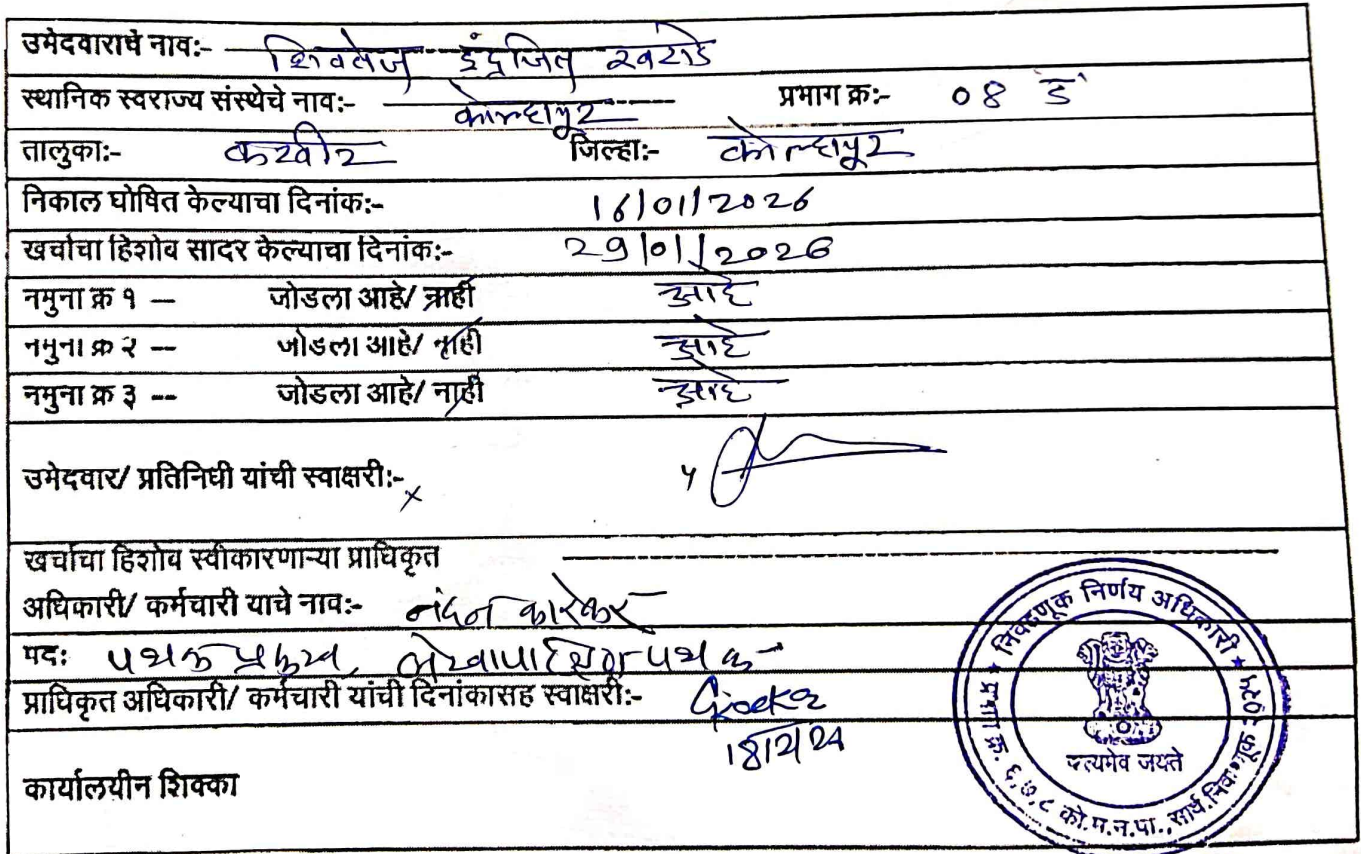 उमेदवाराचे नाव:- शिवतेज इंद्रजित खराडे
स्थानिक स्वराज्य संस्थेचे नाव:- कोल्हापूर प्रभाग क्र:- ०८ ड
तालुका:- करवीर जिल्हा:- कोल्हापूर
निकाल घोषित केल्याचा दिनांक:- 16/01/2026
खर्चाचा हिशोब सादर केल्याचा दिनांक:- 29/01/2026
नमुना क्र १ — जोडला आहे/ नाही आहे
नमुना क्र २ -- जोडला आहे/ नाही आहे
नमुना क्र ३ -- जोडला आहे/ नाही आहे
उमेदवार/ प्रतिनिधी यांची स्वाक्षरी:-
खर्चाचा हिशोब स्वीकारणाऱ्या प्राधिकृत
अधिकारी/ कर्मचारी याचे नाव:- नंदन कारेकर
पदः पथक प्रमुख, लेखापरिक्षण पथक
प्राधिकृत अधिकारी/ कर्मचारी यांची दिनांकासह स्वाक्षरी:-
कार्यालयीन शिक्का
निवडणूक निर्णय अधिकारी
सत्यमेव जयते
प्रभाग क्र. ६,७,८ को.म.न.पा.,